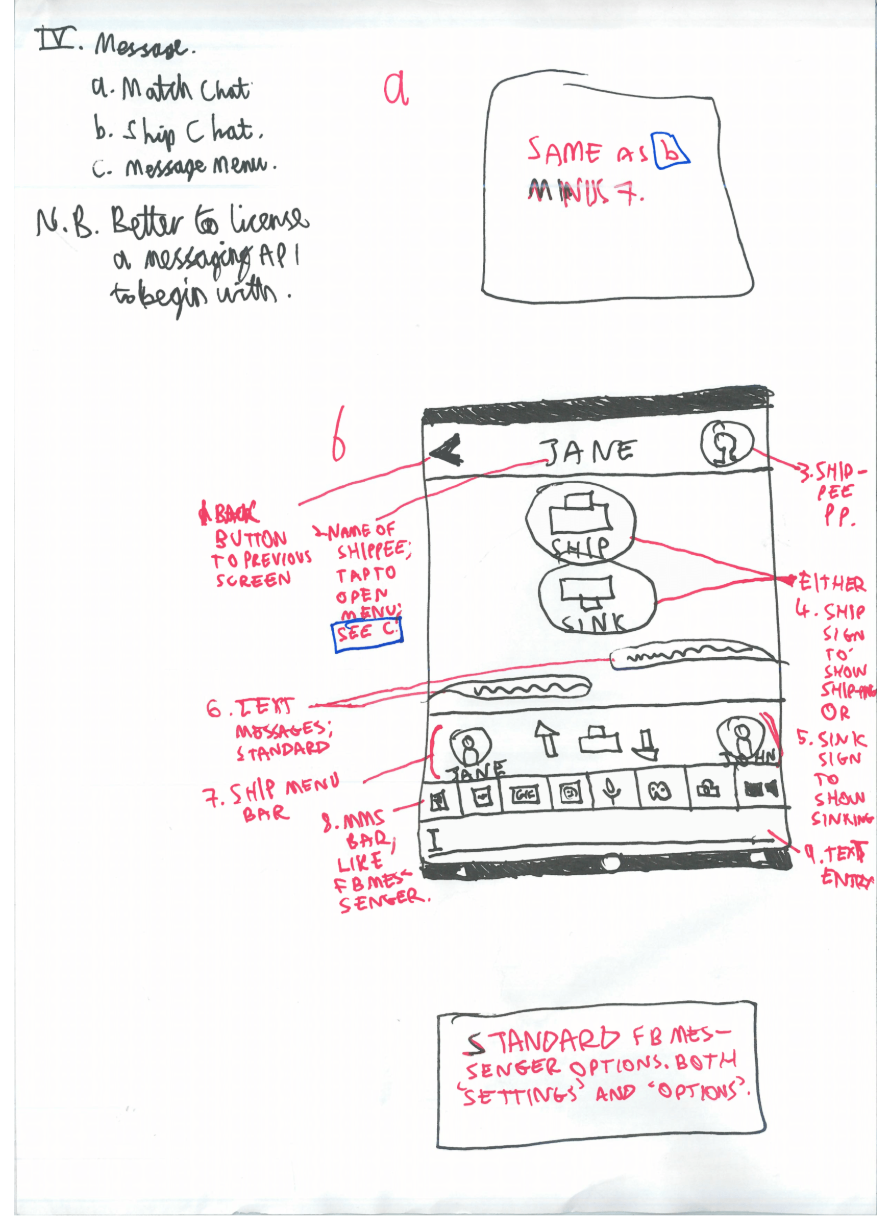 IV. Message.
a. Match Chat
b. Ship Chat.
c. Message Menu.
N.B. Better to license
a messaging API
to begin with.
a
SAME AS b
MINUS 7.
b
JANE
SHIP
SINK
1. BACK
BUTTON
TO PREVIOUS
SCREEN
2. NAME OF
SHIPPEE;
TAP TO
OPEN
MENU;
SEE C.
3. SHIP-
PEE
PP.
EITHER
4. SHIP
SIGN
TO
SHOW
SHIPPING
OR
5. SINK
SIGN
TO
SHOW
SINKING
6. TEXT
MESSAGES;
STANDARD
7. SHIP MENU
BAR
JANE
JOHN
GIF
8. MMS
BAR,
LIKE
FB MES-
SENGER.
9. TEXT
ENTRY
STANDARD FB MES-
SENGER OPTIONS. BOTH
'SETTINGS' AND 'OPTIONS'.